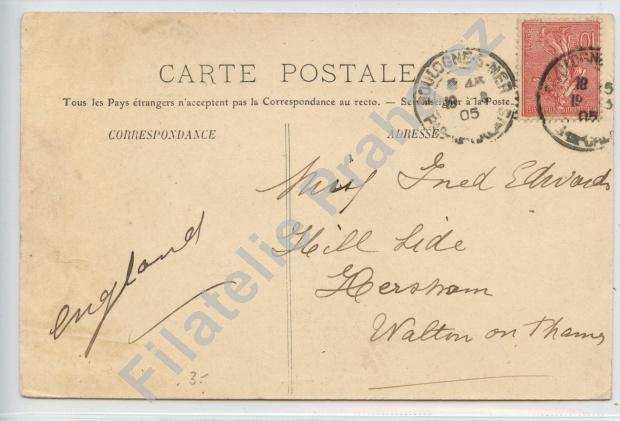 CARTE POSTALE
Tous les Pays étrangers n'acceptent pas la Correspondance au recto. — Se renseigner à la Poste.
CORRESPONDANCE
ADRESSE
BOULOGNE-S-MER
05
PAS-DE-CALAIS
10
BOULOGNE
18
05
Fred Edwards
Hill Side
Hersham
Walton on Thames
england
3-
Filatelie Praha cz